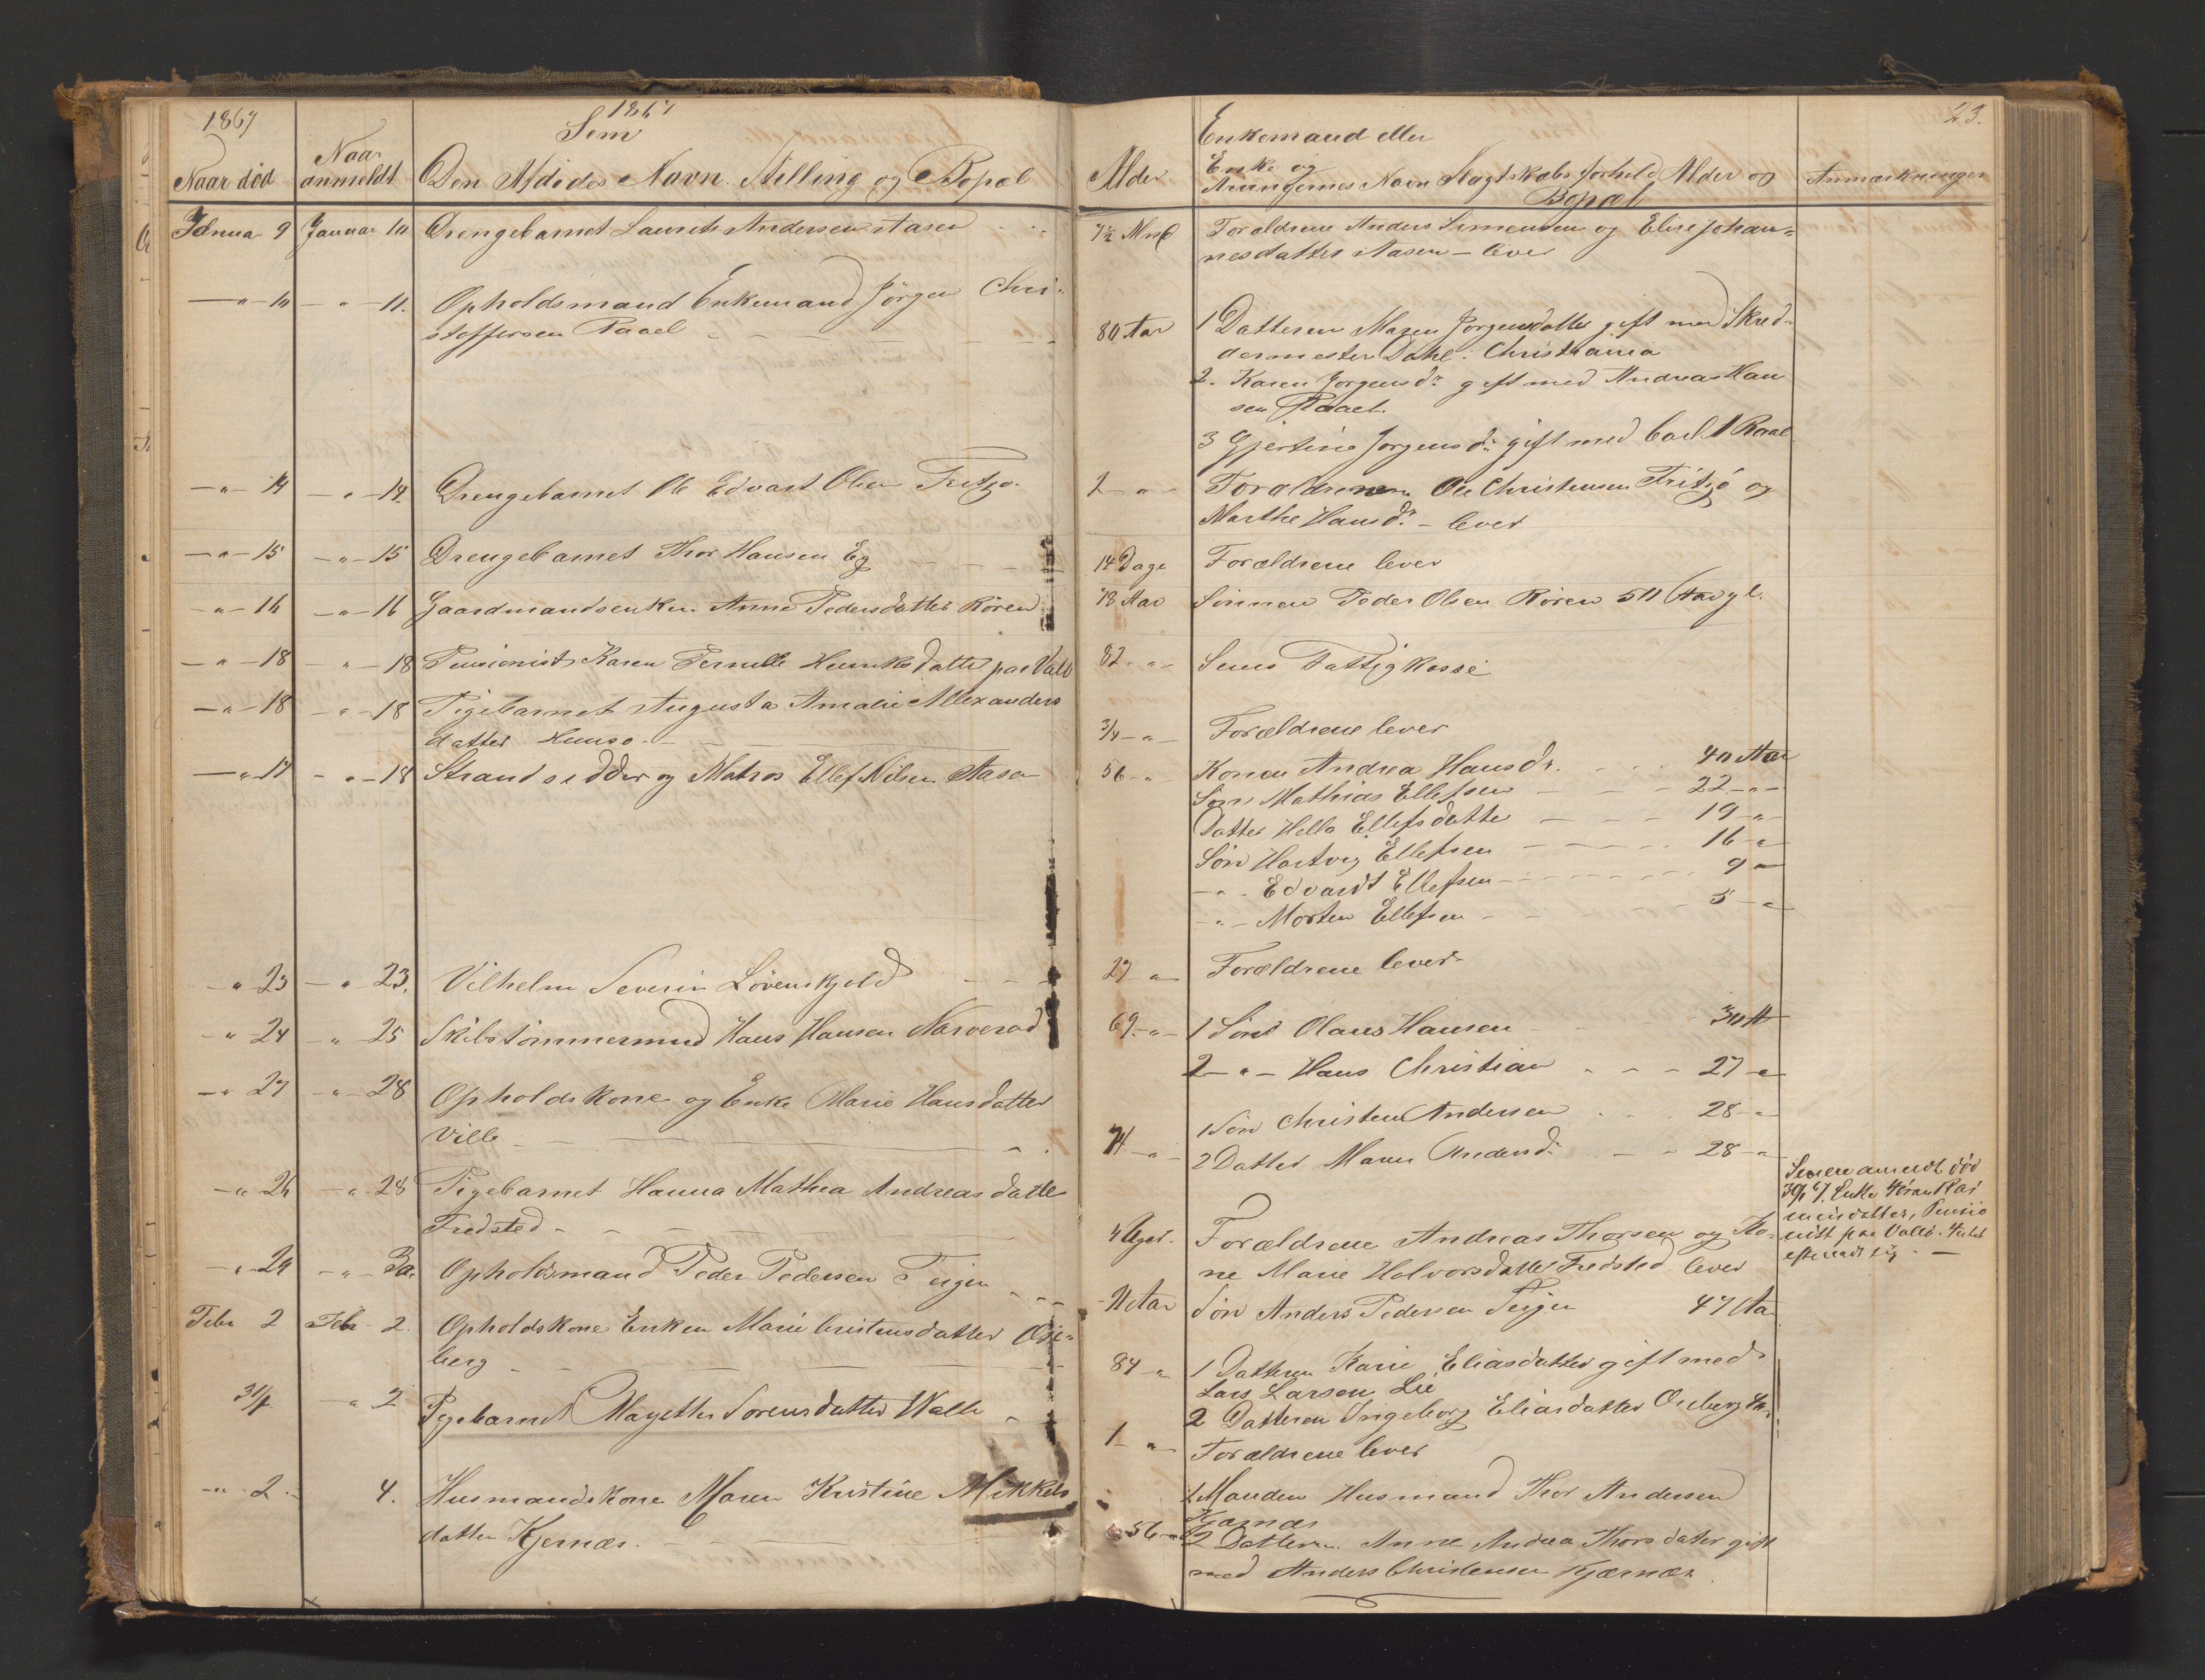 1867
1867
Sem
Naar død
Naar
anmeldt
Den Afdødes Navn. Stilling og Bopæl
Januar 9
Januar 10
Drengebarnet Laurits Andersen Aasen
10
11.
Opholdsmand Enkemand Jörgen Chri-
stoffersen Raael
14
14.
Drengebarnet Ole Edvart Olsen Fritzø
15
15
Drengebarnet Thor Hansen Eg
16
16
Gaardmandsenken Anne Pedersdatter Rören
18
18
Pensionist Karen Pernille Henriksdatter paa Vallø
18
18
Pigebarnet Augusta Amalie Allexanders
datter Husø
17
18
Strandsidder og Matros Ellef Nilsen Aasen
23
23.
Vilhelm Severin Lövenskjold
24
25
Skibstömmermand Hans Hansen Narverød
27
28
Opholdskone og Enke Marie Hansdatter
Ville
26
28
Pigebarnet Hanna Mathea Andreasdatter
Fredsted
29
30.
Opholdsmand Peder Pedersen Teigen
Febr 2
Febr 2
Opholdskone Enken Marie Cristensdatter Ose-
berg
31/1
2
Pigebarnet Mayette Sorensdatter Walle
2
4.
Husmandskone Maren Kristine Mikkels
datter Kjernæs
23.
Alder
Enkemand eller
Enke og
Arvingernes Navn Slagtskabs forhold Alder og
Bopæl
Anmærkninger
7½ Mnd
Forældrene Anders Simensen og Elise Johan-
nesdatter Aasen - lever
80 Aar
1 Datteren Maren Jorgensdatter gift med Skred-
dermester Dahl i Christiania
2. Karen Jorgensdr gift med Andreas Han
sen Raael.
3 Gjertine Jorgensdr gift med Carl Raael
2 - " -
Forældrene Ole Christensen Fritzö og
Marthe Hansdr - lever
14 Dage
Forældrene lever
78 Aar
Sönnen Peder Olsen Rören 50 Aar gl.
82 - " -
Sems Fattigkasse
3/4 - " -
Forældrene lever
56 - " -
Konen Andrea Hansdr. 40 Aar
Søn Mathias Ellefsen 22 - " -
Datter Helle Ellefsdatter 19 - " -
Søn Hartvig Ellefsen 16 - "
- " - Edvardt Ellefsen 9 "
- " - Morten Ellefsen 5 - "
27 "
Forældrene lever
69 - " -
1 Søn Olaus Hansen 30 A
2 - " - Hans Christian 27 - "
74 - " -
1 Søn Christen Andersen 28 - "
2 Datter Maren Andersdr 28 - "
Senere anmeldt død
Enke
datter, Pensio
nist paa Vallø. Intet
efterladt sig
4 Uger.
Forældrene Andreas Thorsen og Ko-
ne Marie Halvorsdatter Fredsted lever
Aar
Søn Anders Pedersen Teigen 47 Aar
84 - "
1 Datteren Karie Eliasdatter gift med
Lars Larsen Lie
2 Datteren Ingeborg Eliasdatter Oseberg
1 - "
Forældrene lever
1 Manden Husmand Thor Andersen
Kjærnæs
56 - "
2 Datteren Anne Andrea Thorsdatter gift
med Anders Christensen Kjærnæs